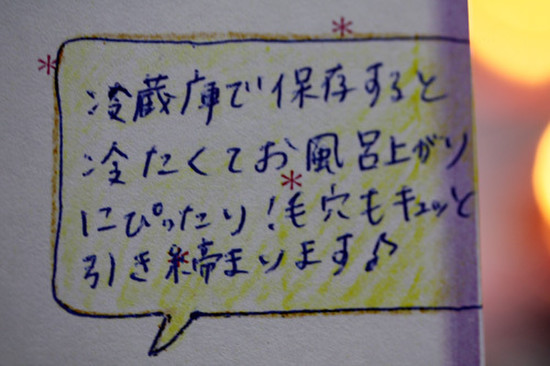 冷蔵庫で保存すると
冷たくてお風呂上がり
にぴったり!毛穴もキュッと
引き締まります♪